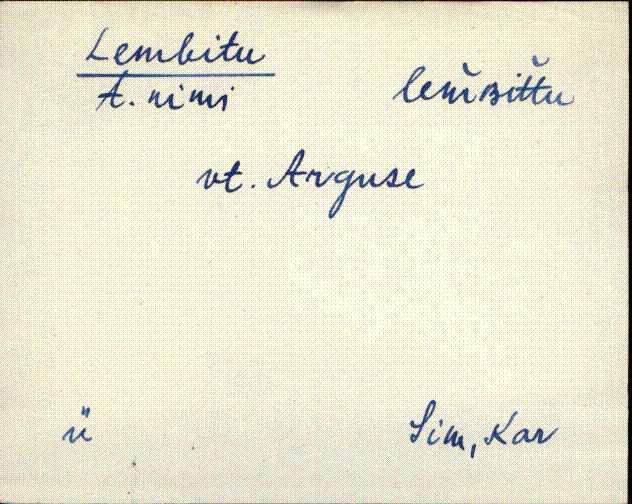 Lembitu
t. nimi
lem̆ʙittu
vt. Arguse
ü
Sim, Kar